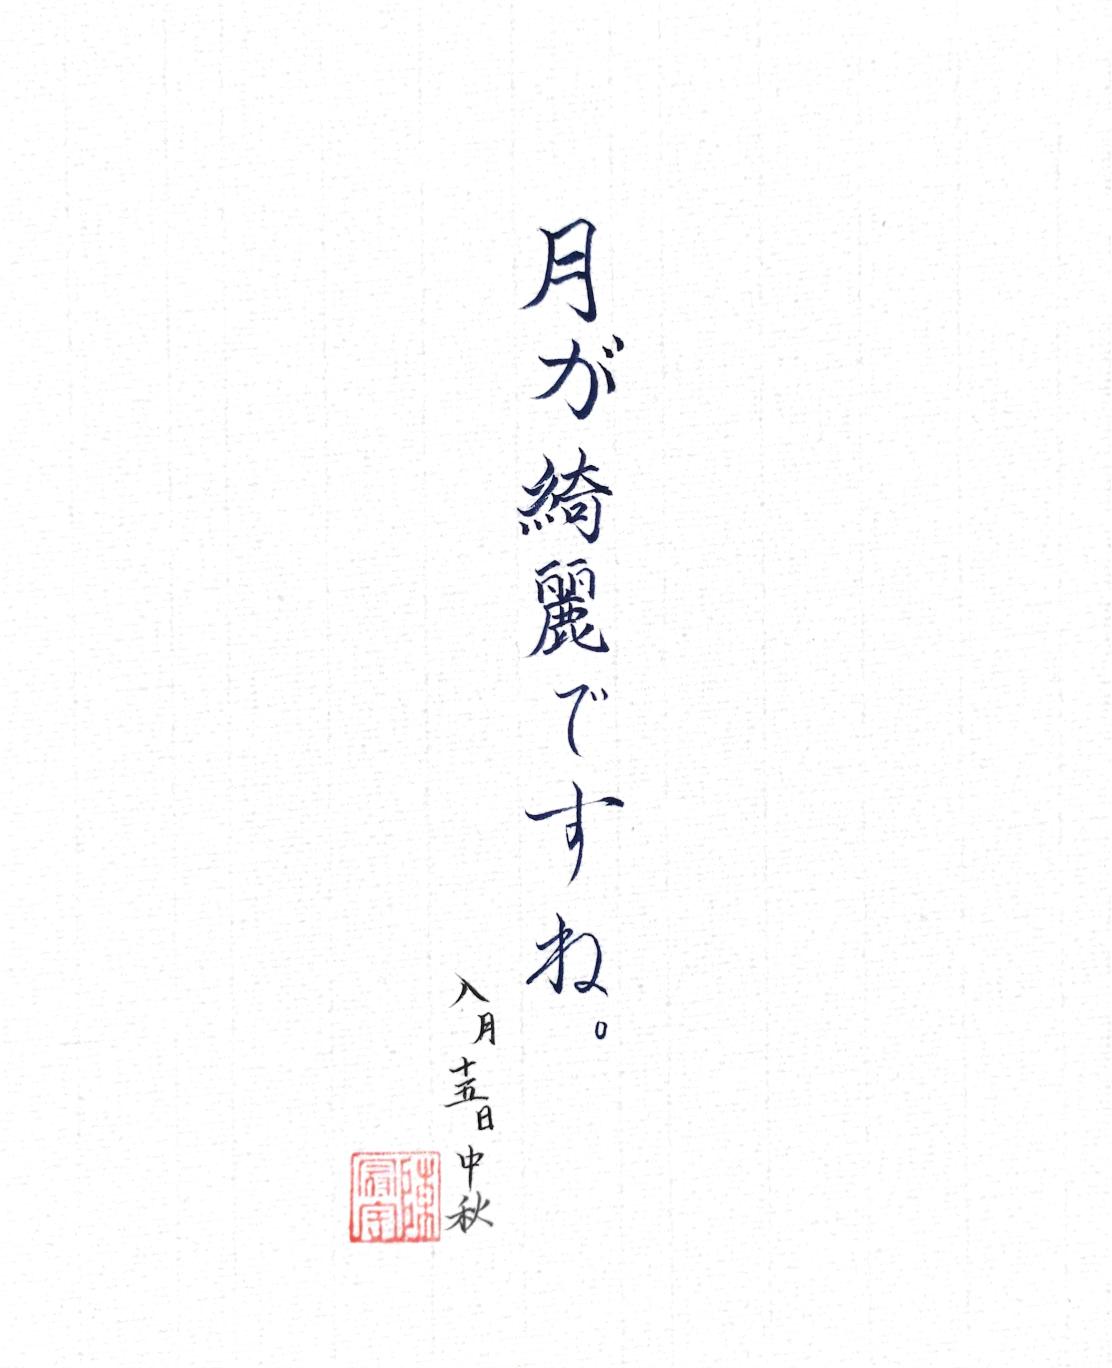 月が綺麗ですね。
八月十五日中秋